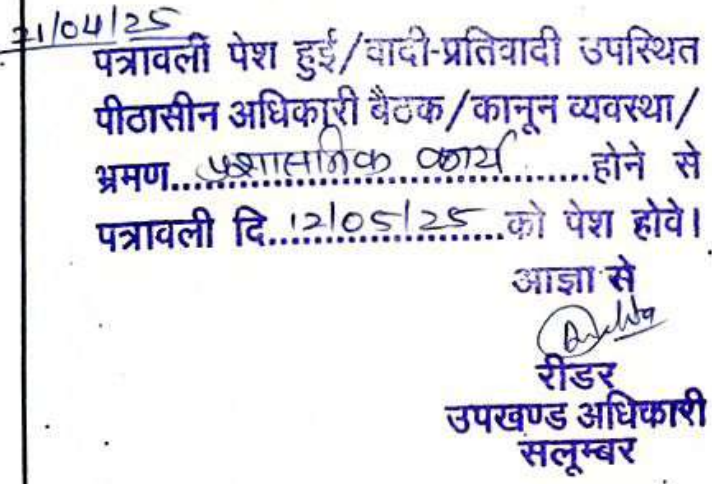 21/04/25
पत्रावली पेश हुई/वादी-प्रतिवादी उपस्थित
पीठासीन अधिकारी बैठक/कानून व्यवस्था/
भ्रमण..प्रशासनिक कार्य......होने से
पत्रावली दि..12/05/25..को पेश होवे।
आज्ञा से
रीडर
उपखण्ड अधिकारी
सलूम्बर